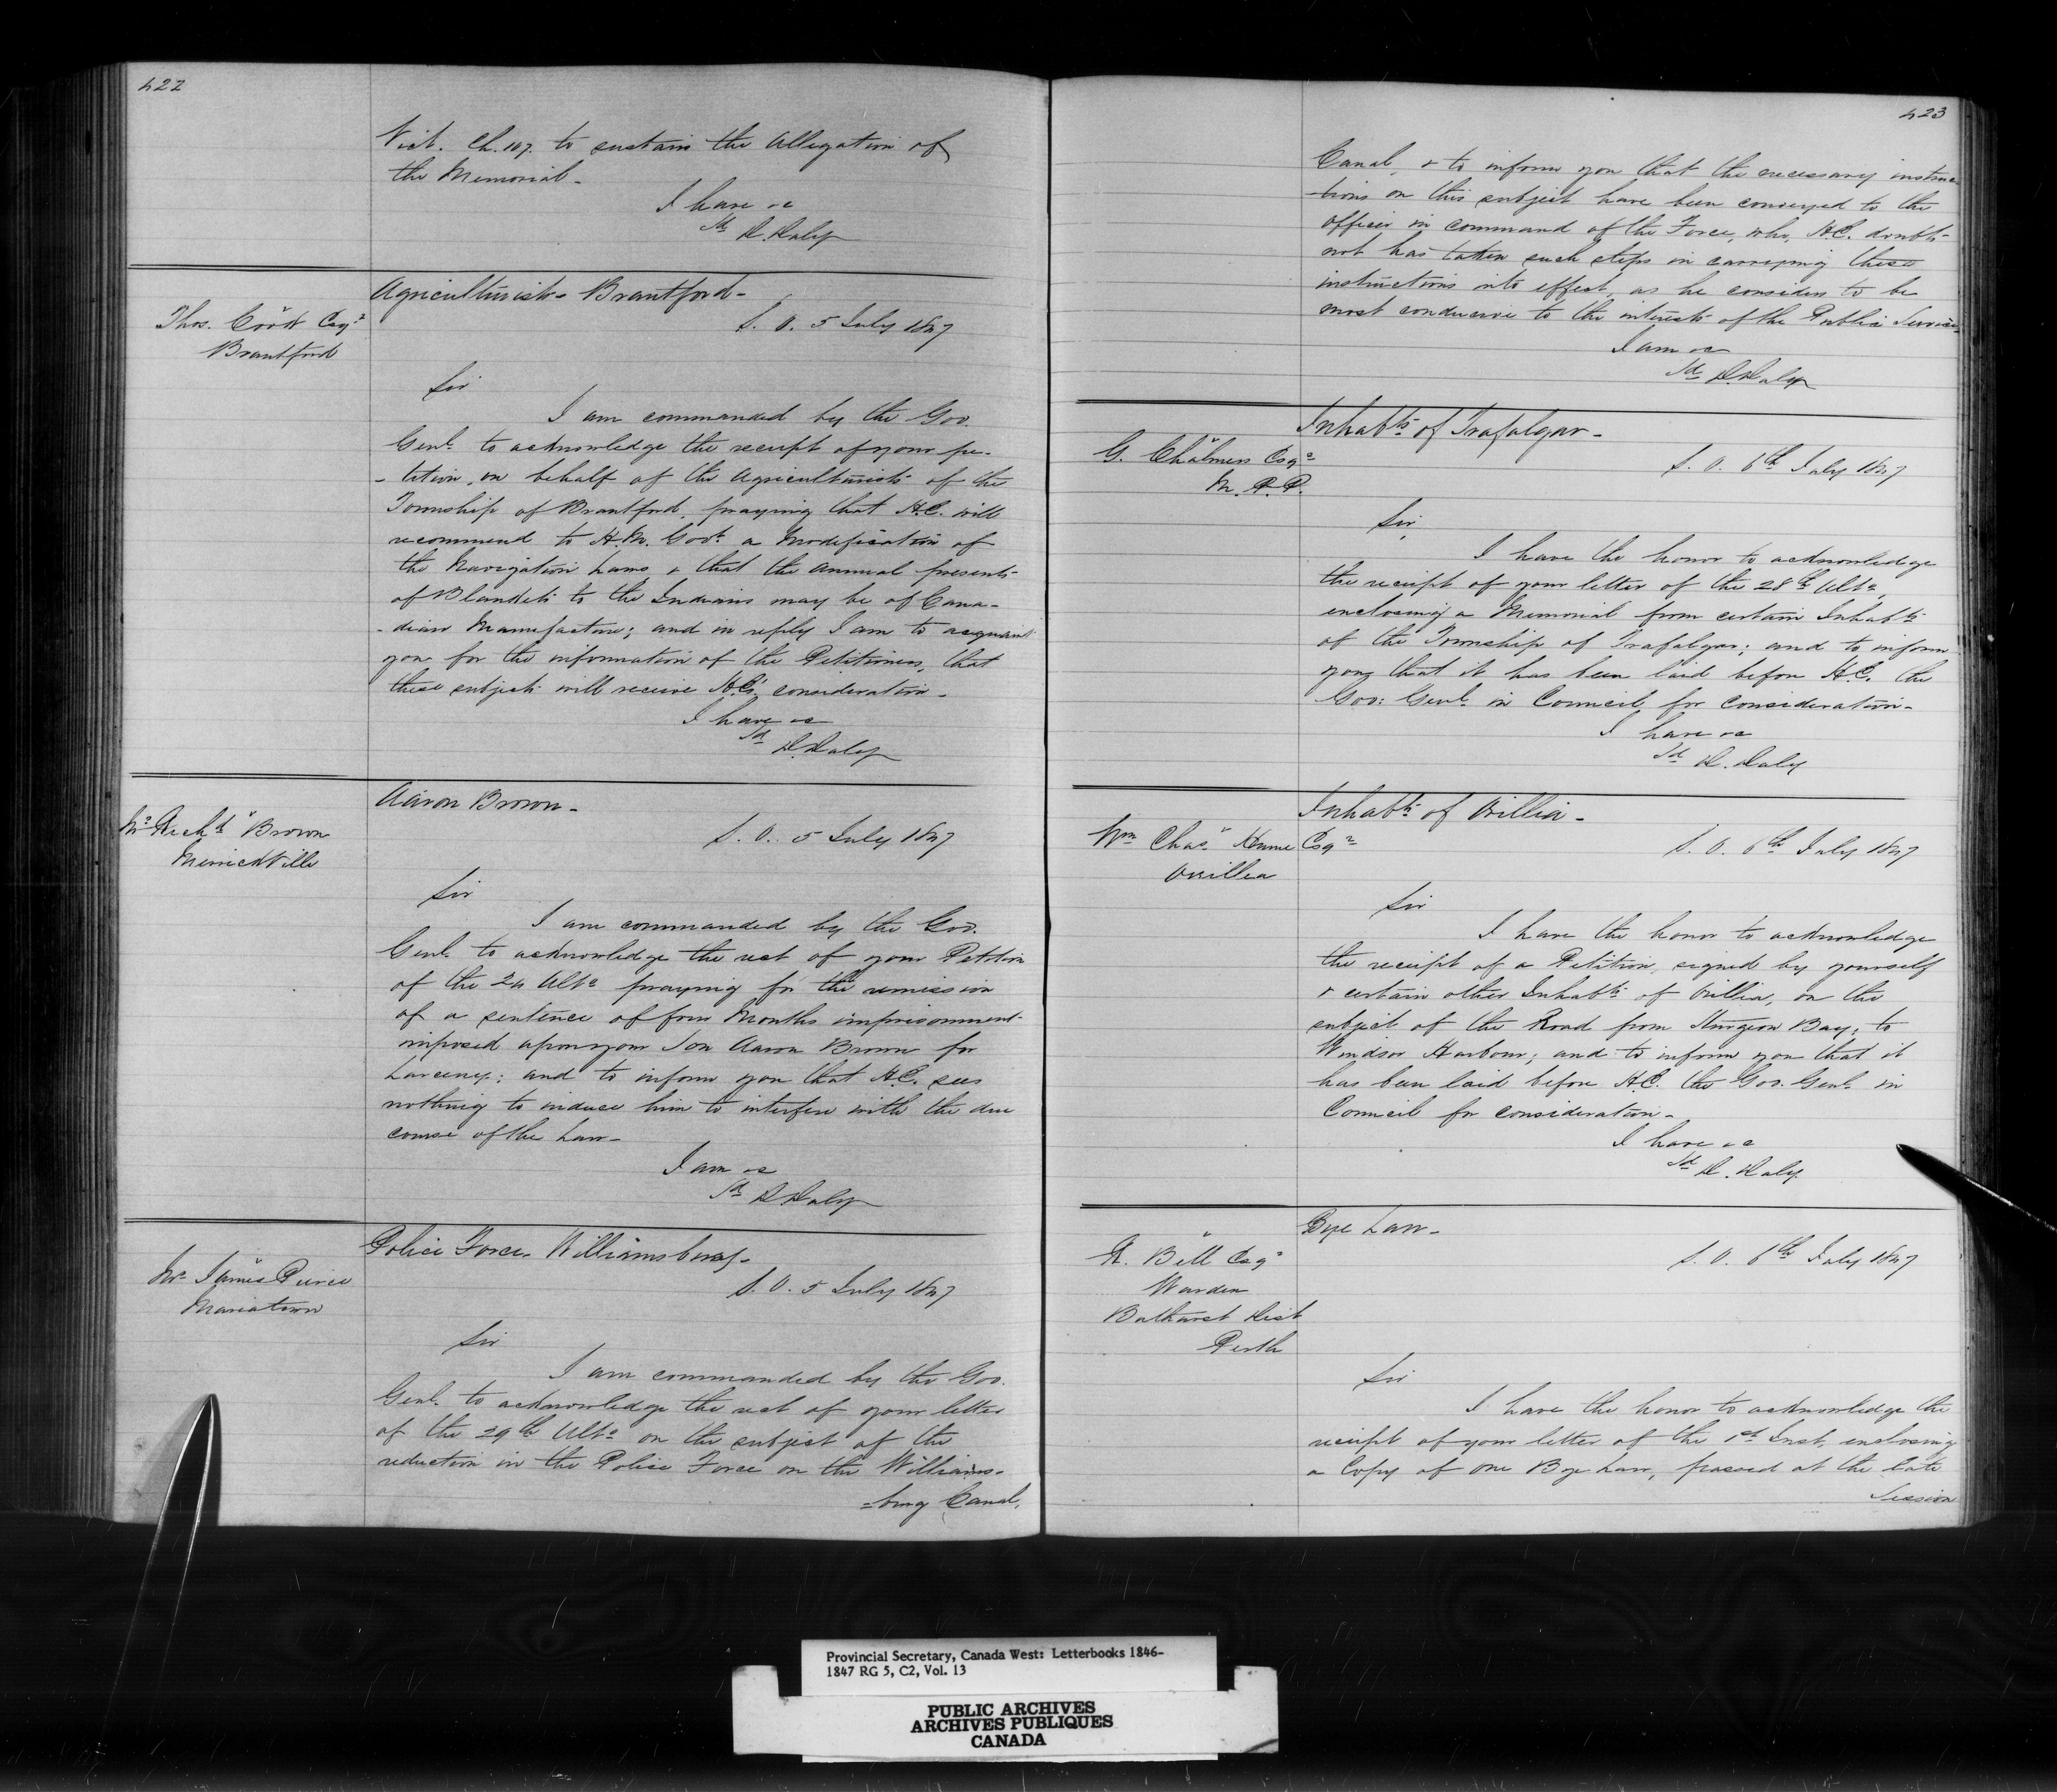 422
Vict. Ch. 107. to sustain the Allegation of
the Memorial -
I have &c
Sd D. Daly
Agriculturists - Brantford -
Thos. Cook Esqr
Brantford
S. O. 5 July 1847
Sir
I am commanded by the Gov.
Genl. to acknowledge the receipt of your pe-
-tition, on behalf of the Agriculturists of the
Township of Brantford, praying that H.E. will
recommend to H.M. Govt. a Modification of
the Navigation Laws, & that the annual presents
of Blankets to the Indians may be of Cana-
-dian Manufacture; and in reply I am to acquaint
you for the information of the Petitioners, that
these subjects will receive H.E's. consideration -
I have &c
Sd D. Daly
Aaron Brown -
Mr. Richd Brown
Merrickville
S. O. 5 July 1847
Sir
I am commanded by the Gov.
Genl. to acknowledge the rect of your Petition
of the 24 Ulto praying for the remission
of a sentence of four Months imprisonment
imposed upon your Son Aaron Brown for
Larceny; and to inform you that H.E. sees
nothing to induce him to interfere with the due
course of the Law -
I am &c
Sd D. Daly
Police Force. Williamsburg -
Mr. James Pierce
Mariatown
S. O. 5 July 1847
Sir
I am commanded by the Gov.
Genl. to acknowledge the rect of your letter
of the 29th Ulto on the subject of the
reduction in the Police Force on the Williams-
-burg Canal,
423
Canal, & to inform you that the necessary instruc-
-tions on this subject have been conveyed to the
officer in command of the Force, who, H.E. doubts
not has taken such steps in carrying these
instructions into effect, as he considers to be
most conducive to the interests of the Public Service
I am &c
Sd D. Daly
Inhabts. of Trafalgar -
G. Chalmers Esqr
M.P.P.
S. O. 6th July 1847
Sir,
I have the honor to acknowledge
the receipt of your letter of the 28th Ulto,
enclosing a Memorial from certain Inhabts
of the Township of Trafalgar; and to inform
you that it has been laid before H.E. the
Gov: Genl. in Council for consideration -
I have &c
Sd D. Daly
Inhabts. of Orillia -
Wm Chas. Hume Esqr
Orillia
S. O. 6th July 1847
Sir
I have the honor to acknowledge
the receipt of a Petition, signed by yourself
& certain other Inhabts. of Orillia, on the
subject of the Road from Sturgeon Bay, to
Windsor Harbour; and to inform you that it
has been laid before H.E. the Gov. Genl. in
Council for consideration -
I have &c
Sd D. Daly
Bye Law -
R. Bell Esqr
Warden
Bathurst Dist
Perth
S. O. 6th July 1847
Sir
I have the honor to acknowledge the
receipt of your letter of the 1st Inst, enclosing
a Copy of one Bye Law, passed at the late
Session
Provincial Secretary, Canada West: Letterbooks 1846-
1847 RG 5, C2, Vol. 13
PUBLIC ARCHIVES
ARCHIVES PUBLIQUES
CANADA